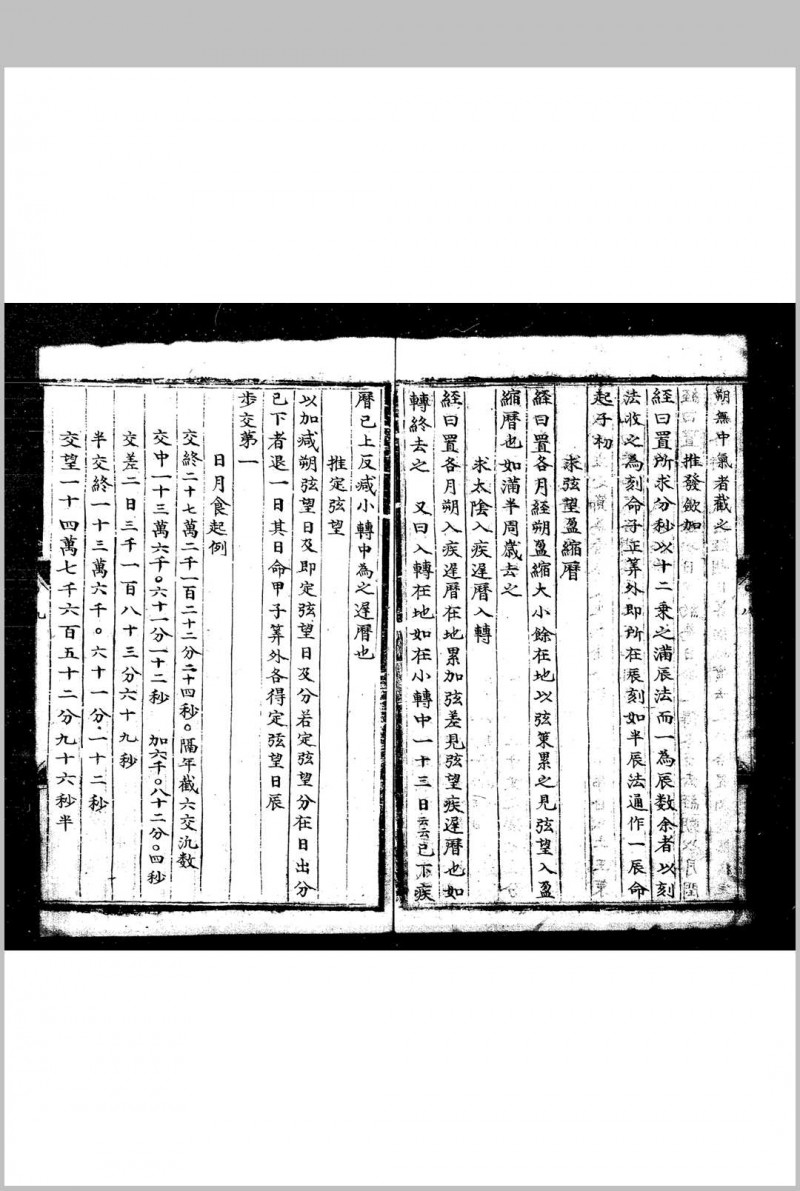 朔無中氣者截之
推發歛如
經曰置所求分秒以十二乗之滿辰法而一為辰数余者以刻
法收之為刻命子正筭外即所在辰刻如半辰法通作一辰命
起子初
求弦望盈縮曆
經曰置各月經朔盈縮大小餘在地以弦策累之見弦望入盈
縮曆也如滿半周歲去之
求太陰入疾遲曆入轉
經曰置各月朔入疾遲曆在地累加弦差見弦望疾遲曆也如
轉終去之 又曰入轉在地如在小轉中一十三日云云已下疾
曆已上反减小轉中為之遲曆也
推定弦望
以加减朔弦望日及即定弦望日及分若定弦望分在日出分
已下者退一日其日命甲子筭外各得定弦望日辰
步交第一
日月食起例
交終二十七萬二千一百二十二分二十四秒○隔年截六交氿数
交中一十三萬六千○六十一分一十二秒 加六千○八十二分○四秒
交差二日三千一百八十三分六十九秒
半交終一十三萬六千○六十一分·一十二秒
交望一十四萬七千六百五十二分九十六秒半
九
八